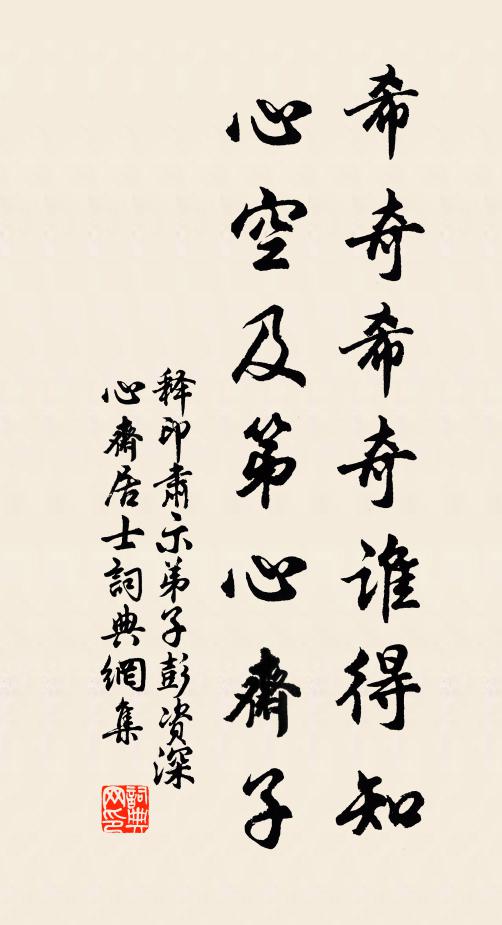 希奇希奇谁得知
心空及第心齋子
释印肃示弟子彭资深
心齋居士詞典網集
詞典网印